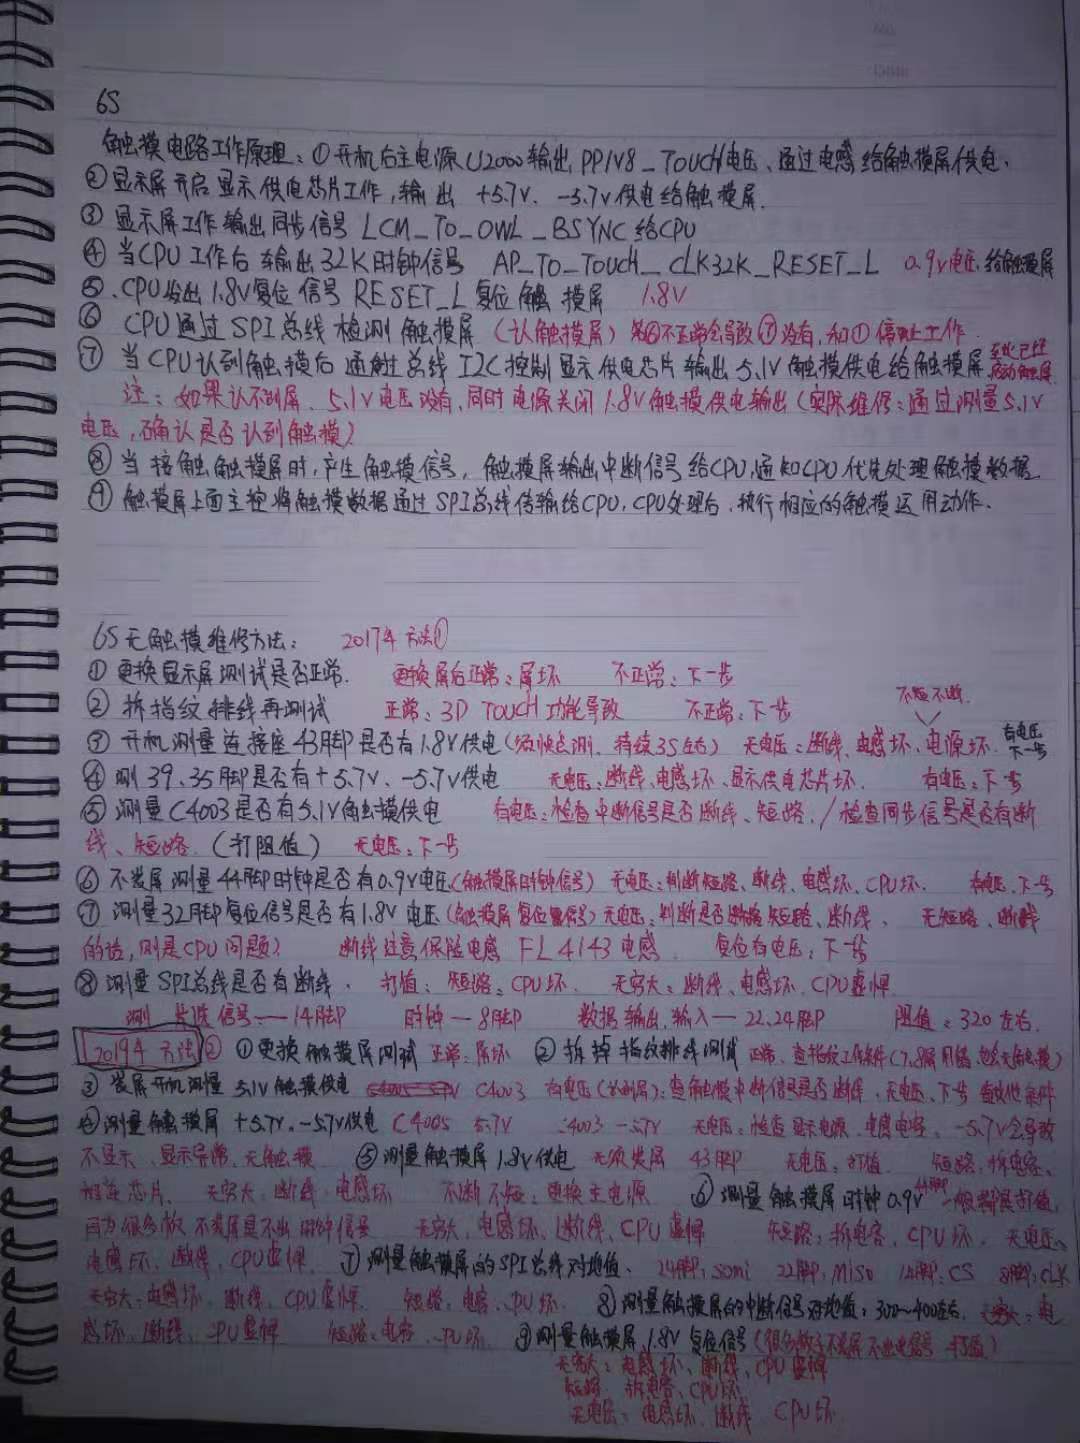 6S
触摸电路工作原理：①开机后主电源U2000输出PP1V8_TOUCH电压、通过电感给触摸屏供电.
②显示屏开启显示供电芯片工作,输出 +5.7V. -5.7V供电给触摸屏.
③ 显示屏工作输出同步信号 LCM_TO_OWL_BSYNC给CPU
④ 当CPU工作后 输出32K时钟信号 AP_TO_TOUCH_CLK32K_RESET_L 0.9V电压.给触摸屏
⑤.CPU发出1.8V复位信号 RESET_L 复位触摸屏 1.8V
⑥ CPU通过SPI总线检测触摸屏（认触摸屏）如⑥不正常会导致⑦没有,和①停止工作.
⑦ 当CPU认到触摸后通过总线 I2C控制显示供电芯片输出5.1V触摸供电给触摸屏
注：如果认不到屏、5.1V电压没有,同时电源关闭1.8V触摸供电输出（实际维修：通过测量5.1V
电压,确认是否认到触摸）
⑧ 当接触触摸屏时,产生触摸信号, 触摸屏输出中断信号给CPU,通知CPU优先处理触摸数据.
⑨ 触摸屏上面主控将触摸数据通过SPI总线传输给CPU,CPU处理后,执行相应的触摸运用动作.
6S无触摸维修方法： 2017年方法①
① 更换显示屏测试是否正常. 更换屏后正常：屏坏 不正常：下一步
② 拆指纹排线再测试 正常：3D TOUCH功能导致 不正常：下一步
不短不断
③ 开机测量连接座43脚是否有1.8V供电(须快点测.持续3S左右) 无电压：断线、电感坏、电源坏. 有电压下一步
④ 测39.35脚是否有+5.7V、-5.7V供电 无电压：断线、电感坏、显示供电芯片坏. 有电压：下一步
⑤ 测量C4003是否有5.1V触摸供电 有电压：检查中断信号是否断线、短路./检查同步信号是否有断
线、短路.（打阻值） 无电压：下一步
⑥ 不装屏测量44脚时钟是否有0.9V电压(触摸屏时钟信号) 无电压：判断短路、断线、电感坏、CPU坏. 有电压.下一步
⑦ 测量32脚复位信号是否有1.8V电压(触摸屏复位信号)无电压：判断是否短路、断线, 无短路、断线
的话,则是CPU问题？ 断线注意保险电感 FL4143电感. 复位有电压：下一步
⑧ 测量SPI总线是否有断线. 打值：短路：CPU坏. 无穷大：断线、电感坏.CPU虚焊.
测 片选信号—14脚 时钟—8脚 数据输出.输入—22.24脚 阻值：320左右.
2019年方法② ①更换触摸屏测试 正常：屏坏 ②拆掉指纹排线测试 正常.查指纹工作条件
③ 装屏开机测量 5.1V触摸供电 C4003 有电压(认到屏)：查触摸中断信号是否断线.无电压、下一步
④测量触摸屏 +5.7V.-5.7V供电 C4005 5.7V 4003 -5.7V 无电压：检查显示电源.电感电容. -5.7V会导致
不显示、显示异常、无触摸 ⑤测量触摸屏1.8V供电 无须装屏 43脚 无电压：打值. 短路：拆电容、
相连芯片. 无穷大：断线、电感坏 不断不短：更换主电源 ⑥测量触摸屏时钟0.9V 44脚
因为很多板不装屏是不出时钟信号 无穷大、电感坏、断线、CPU虚焊 短路：拆电容.CPU坏.无电压、
电感坏、断线、CPU虚焊. ⑦测量触摸屏的SPI总线对地值、 24脚：somi 22脚：MISO 14脚：CS 8脚：CLK
无穷大：电感坏、断线、CPU虚焊. 短路、电容、CPU坏. ⑧测量触摸屏的中断信号对地值：300~400左右.无穷大：电
感坏、断线、CPU虚焊 短路：电容、CPU坏. ⑨测量触摸屏1.8V复位信号
无穷大：电感坏、断线、CPU虚焊
短路、拆电容、CPU坏
无电压：电感坏、断线 CPU坏.